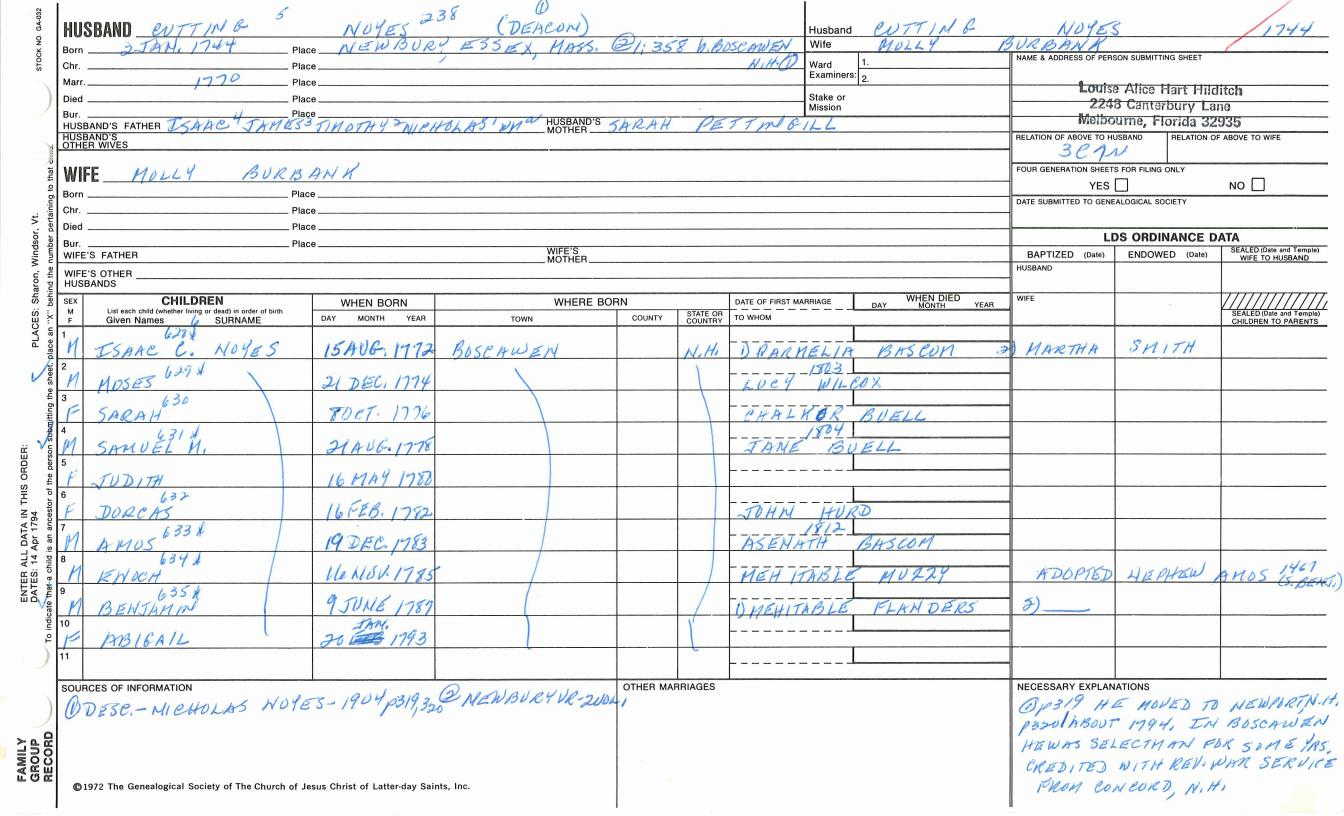 STOCK NO. GA-032
HUSBAND CUTTING 5 NOYES 238 (DEACON) ①
Born 2 JAN. 1744 Place NEWBURY, ESSEX, MASS. ②1:358 b. BOSCAWEN N.H.①
Chr. Place
Marr. 1770 Place
Died Place
Bur. Place
HUSBAND'S FATHER ISAAC 4 JAMES 3 TIMOTHY 2 NICHOLAS 1 WM HUSBAND'S MOTHER SARAH PETTINGILL
HUSBAND'S OTHER WIVES
WIFE MOLLY BURBANK
Born Place
Chr. Place
Died Place
Bur. Place
WIFE'S FATHER WIFE'S MOTHER
WIFE'S OTHER HUSBANDS
Husband CUTTING NOYES 1744
Wife MOLLY BURBANK
Ward Examiners: 1. 2.
Stake or Mission
NAME & ADDRESS OF PERSON SUBMITTING SHEET
Louise Alice Hart Hilditch
2248 Canterbury Lane
Melbourne, Florida 32935
RELATION OF ABOVE TO HUSBAND RELATION OF ABOVE TO WIFE
FOUR GENERATION SHEETS FOR FILING ONLY
YES NO
DATE SUBMITTED TO GENEALOGICAL SOCIETY
LDS ORDINANCE DATA
BAPTIZED (Date) ENDOWED (Date) SEALED (Date and Temple) WIFE TO HUSBAND
HUSBAND
WIFE
SEALED (Date and Temple) CHILDREN TO PARENTS
SEX M F CHILDREN WHEN BORN WHERE BORN DATE OF FIRST MARRIAGE WHEN DIED
List each child (whether living or dead) in order of birth
Given Names 6 SURNAME DAY MONTH YEAR TOWN COUNTY STATE OR COUNTRY TO WHOM DAY MONTH YEAR
1 M ISAAC C. NOYES 15 AUG. 1772 BOSCAWEN N.H. 1) PARMELIA BASCOM 2) MARTHA SMITH
2 M MOSES 629 21 DEC. 1774 1803 LUCY WILCOX
3 F SARAH 630 8 OCT. 1776 CHALKER BUELL
4 M SAMUEL M. 631 21 AUG. 1778 1804 JANE BUELL
5 F JUDITH 16 MAY 1780
6 F DORCAS 632 16 FEB. 1782 JOHN HURD
7 M AMOS 633 19 DEC. 1783 1812 ASENATH BASCOM
8 M ENOCH 634 16 NOV. 1785 MEHITABLE MUZZY ADOPTED NEPHEW AMOS 1467 (S. BENJ.)
9 M BENJAMIN 635 9 JUNE 1787 1) MEHITABLE FLANDERS 2)
10 F ABIGAIL 20 JAN. 1793
11
SOURCES OF INFORMATION
① DESC.- NICHOLAS NOYES- 1904 p319,320 ② NEWBURY VR- 2 VOL,
OTHER MARRIAGES
NECESSARY EXPLANATIONS
①p319 HE MOVED TO NEWPORT N.H.
p320/ ABOUT 1794. IN BOSCAWEN
HE WAS SELECTMAN FOR SOME YRS.
CREDITED WITH REV. WAR SERVICE
FROM CONCORD, N.H.
©1972 The Genealogical Society of The Church of Jesus Christ of Latter-day Saints, Inc.
FAMILY GROUP RECORD
ENTER ALL DATA IN THIS ORDER:
DATES: 14 Apr 1794 PLACES: Sharon, Windsor, Vt.
To indicate that a child is an ancestor of the person submitting the sheet, place an "X" behind the number pertaining to that child.